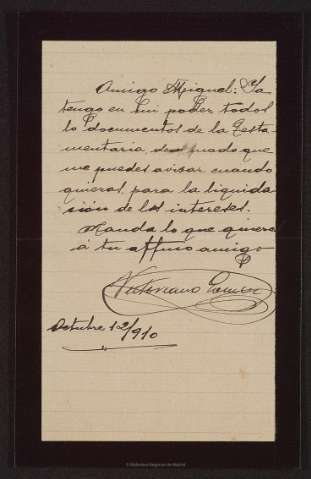 Amigo Miguel: Ya
tengo en mi poder todos
lo documentos de la Testa-
mentaria, de modo que
me puedes avisar cuando
quieras, para la liquida
sión de los intereses.
Manda lo que quieras
á tu affmo amigo
Victoriano
Octubre 12/910
© Biblioteca Regional de Madrid